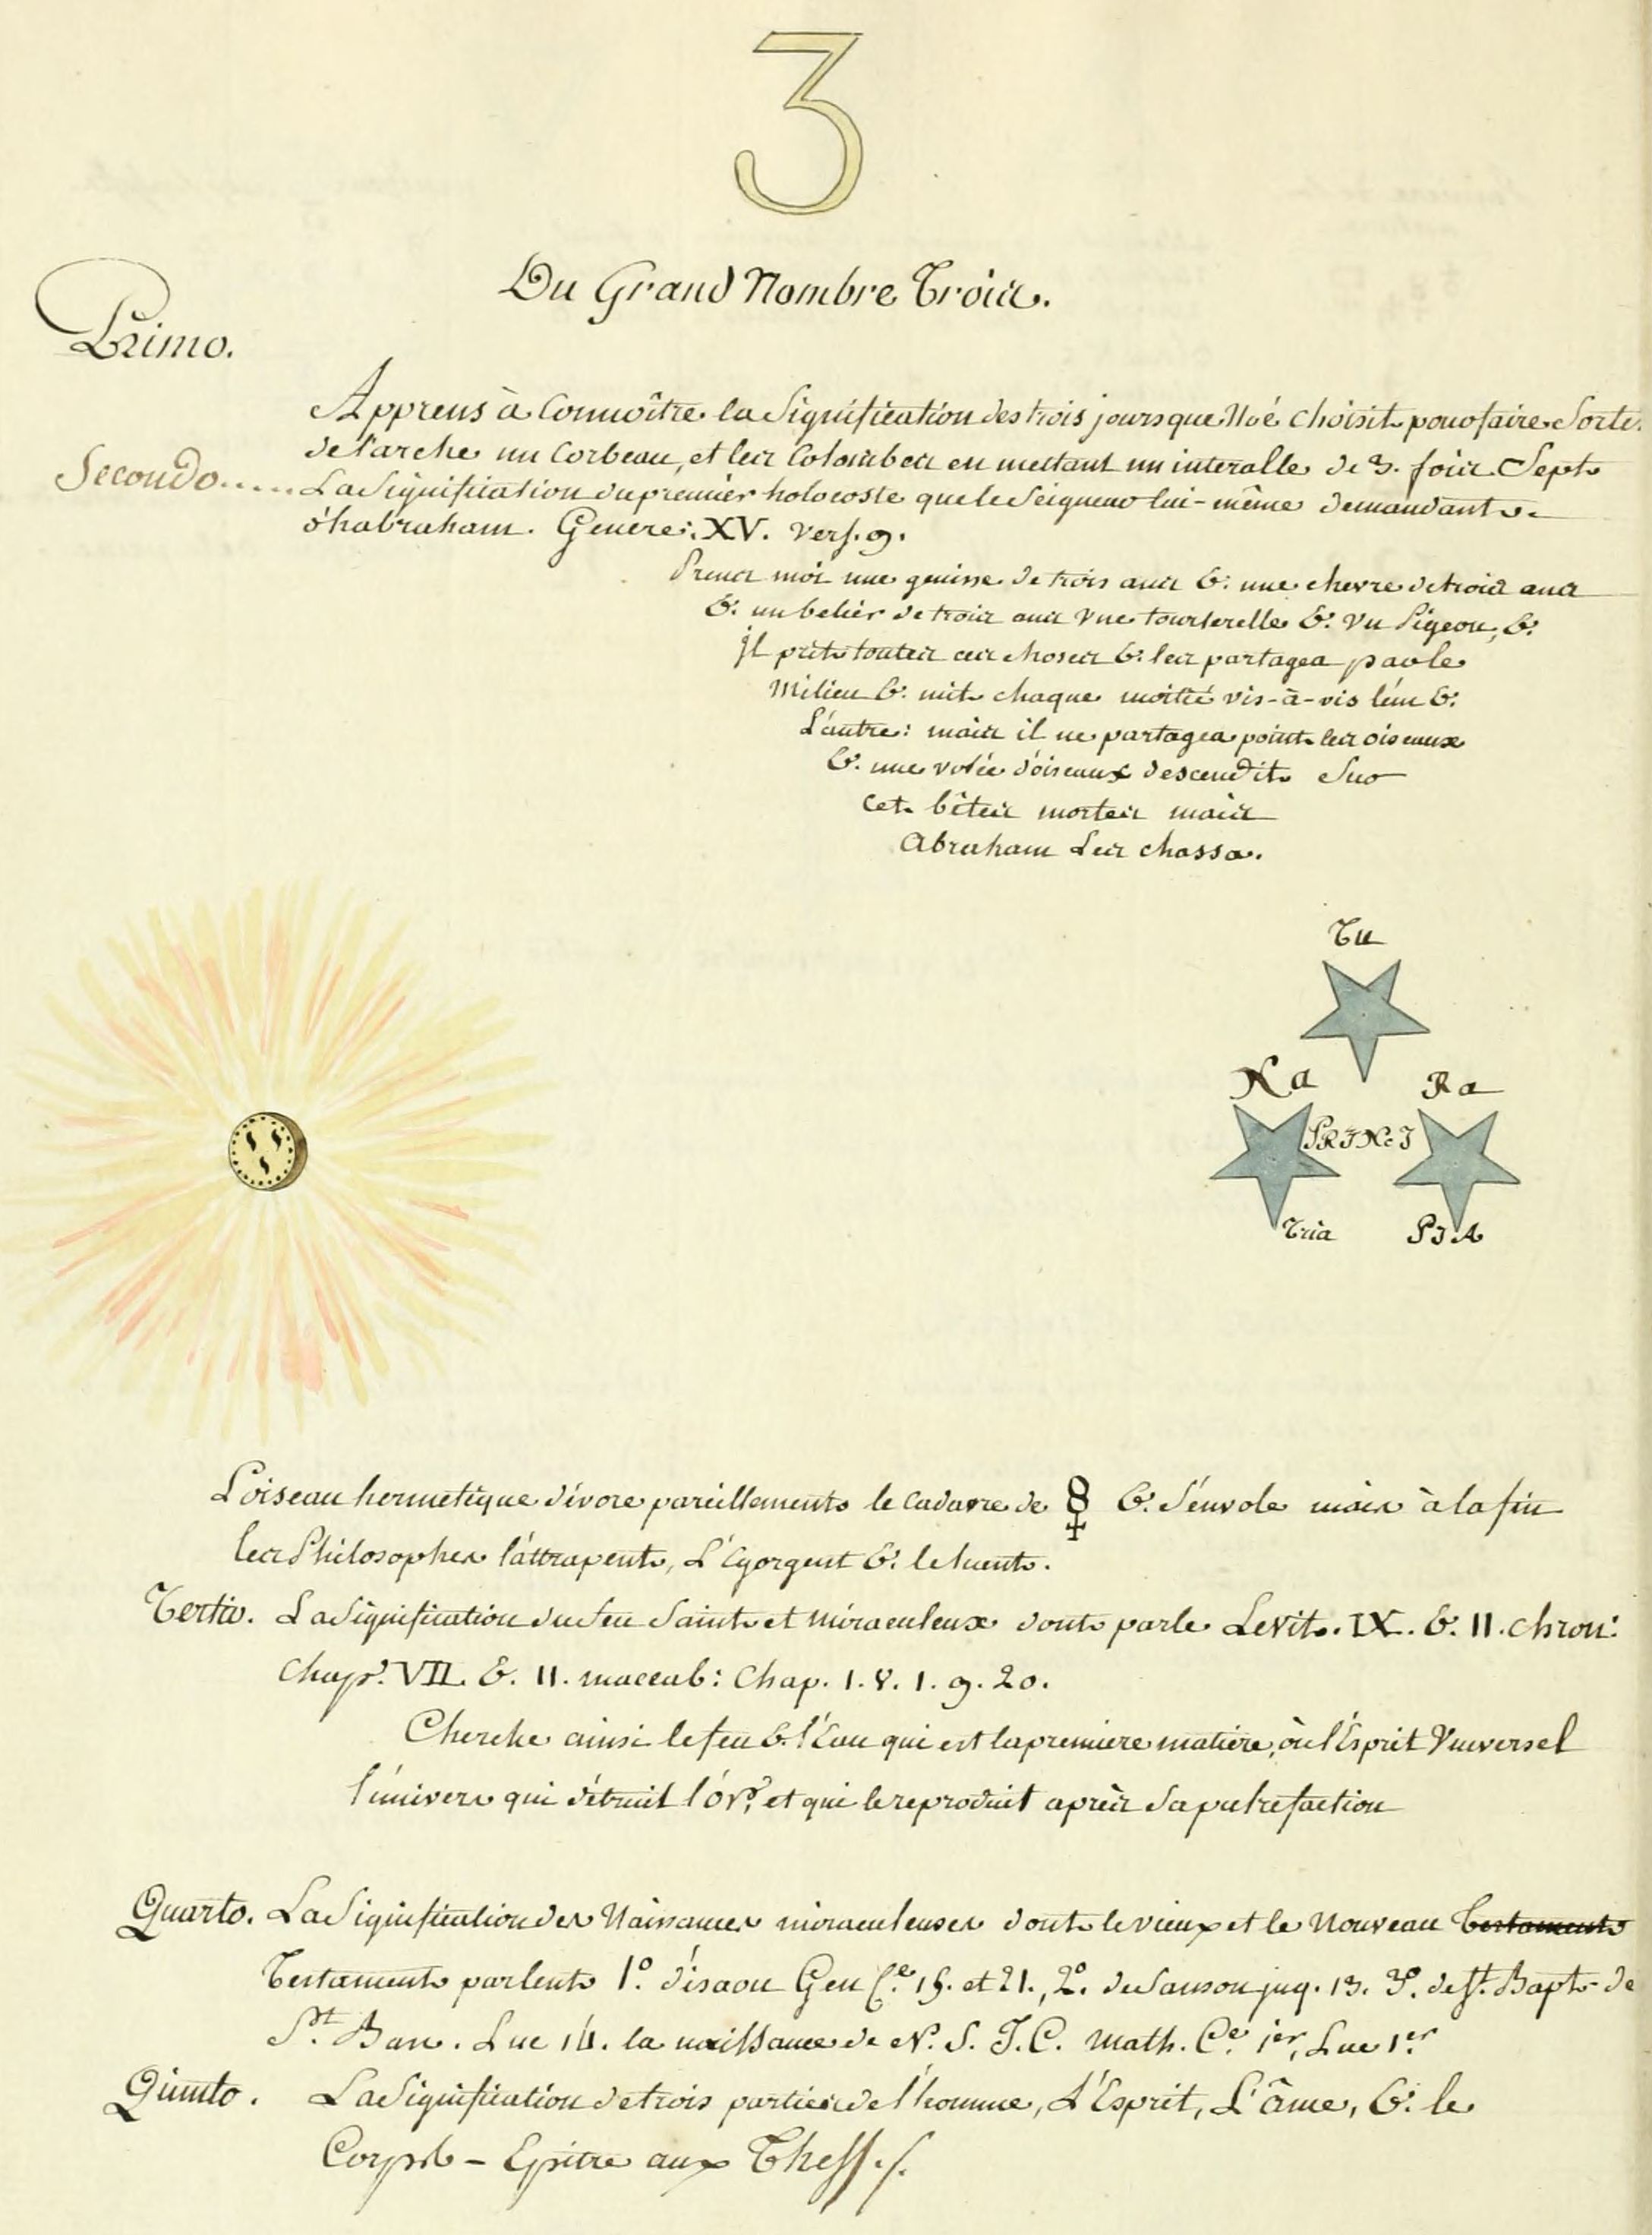 3
Du Grand Nombre Trois.
Primo.
Apprens à Connoître la Signification des trois jours que Noé choisit pour faire Sortir
de l'arche un Corbeau, et les Colombes en mettant un interalle de 3. fois Sept
Secondo..... La Signification du premier holocoste que le Seigneur lui-même demandant
d'habraham. Genese: XV. Vers. 9.
Prens moi une genisse de trois ans & une chevre de trois ans
& un belier de trois ans Vne tourterelle & Vn Pigeon, &
jl prit toutes ces choses & les partagea par le
Milieu & mit chaque moitié vis-à-vis l'un &
L'autre: mais il ne partagea point les oiseaux
& une volée d'oiseaux descendit Sur
cet bêtes mortes mais
Abraham Les chassa.
Tu
Na Ra
PRINCI
Tria PIA
L'oiseau hermetique dévore pareillement le cadavre de & S'envole mais à la fin
les Philosophes l'attrapent, L'Egorgent & le tuent.
Tertio. La Signification du feu Saint et Miraculeux dont parle Levit. IX. & II. Chron:
Chap. VII. & II. maccab: Chap. 1. 8. 1. 9. 20.
Cherche ainsi le feu & l'Eau qui est la premiere matiere, où l'Esprit Vniversel
l'univers qui détruit l'or, et qui le reproduit après Sa putrefaction
Quarto. La Signification des Naissances miraculeuses dont le vieux et le Nouveau Testament
Testament parlent 1º. d'isaou Gen C.e 15. et 21., 2º. de Sanson jug. 13. 3º. de St. Bapt- de
St. Ban. Luc 14. la naissance de N. S. J. C. Math. C.e 1er, Luc 1er
Quinto. La Signification de trois parties de l'homme, L'Esprit, L'âme, & le
Corps - Epitre aux Thess. 5.